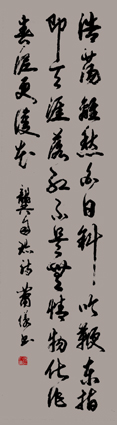 浩荡離愁白日斜吟鞭东指
即天涯落红不是無情物化作
春泥更護花
龔自珍詩 蕭